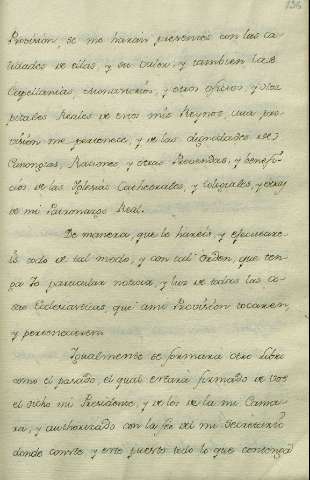 136
Provision, se me haran presentes con las ca-
lidades de ellas, y su valor, y tambien las
Capellanias, Monasterios, y otros oficios, y Hos
pitales Reales de estos mis Reynos, cuia pro-
vision me pertenece, y de las dignidades
Canongias, Raciones y otras Prevendas, y benefi-
cios de las Iglesias Cathedrales, y Colegiales, y otras
de mi Patronazgo Real.
De manera, que lo hareis, y
todo de tal modo, y con tal orden, que ten-
ga Yo particular noticia, y luz de todas las co-
sas Eclesiasticas, que à mi Provision tocaren,
y pertenecieren.
Igualmente se formara otro Libro
como el pasado, el qual estarà firmado de vos
el dicho mi Presidente, y de los de la mi Cama-
ra, y authorizado con la fee del mi Secretario
donde conste, y este puesto todo lo que contenga